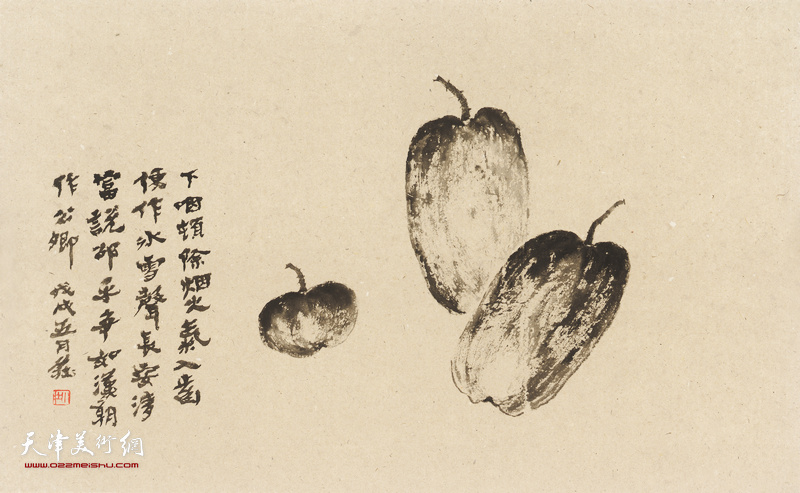 下咽頓除烟火氣入齒
便作冰雪聲長安清
富說邵平争如漢朝
作公卿 戊戌五月
天津美術網
www.022meishu.com